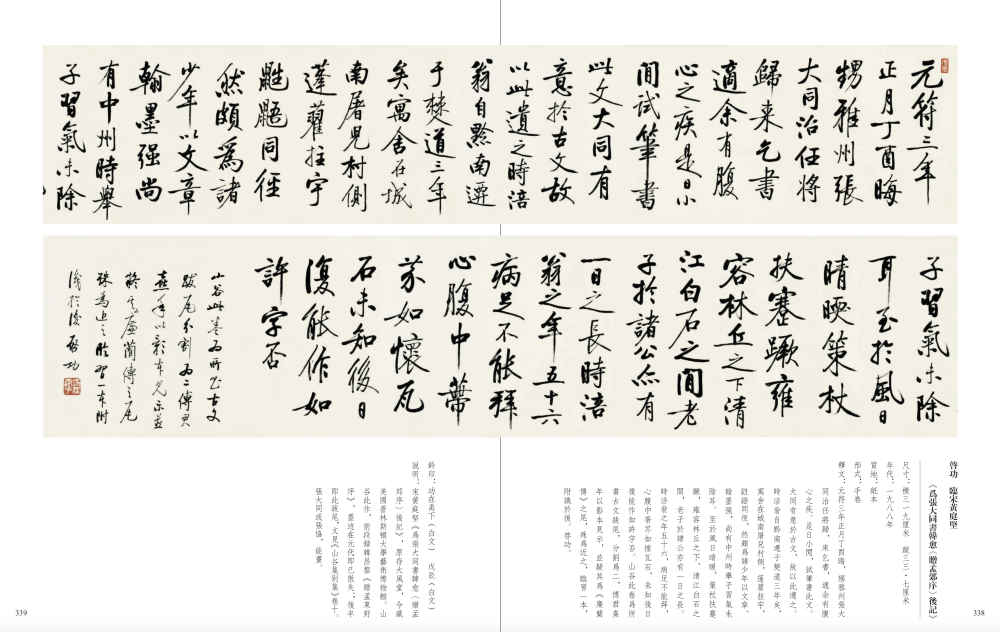 元符三年
正月丁酉晦
甥雅州張
大同治任將
歸來乞書
適余有腹
心之疾是日小
閒試筆書
此文大同有
意於古文故
以此遺之時涪
翁自黔南遷
于僰道三年
矣寓舍在城
南屠兒村側
蓬藋拄宇
鼪鼯同徑
然頗爲諸
少年以文章
翰墨强尚
有中州時舉
子習氣未除
子習氣未除
耳至於風日
晴暖策杖
扶蹇蹶雍
容林丘之下清
江白石之間老
子於諸公亦有
一日之長時涪
翁之年五十六
病足不能拜
心腹中蔕
芥如懷瓦
石未知後日
復能作如
許字否
山谷此卷為所書古文
跋尾分割為二傅君
熹年以影本見示並
疑其為廉藺傳之尾
殊為近之臨習一本附
識於後啓功
啓功　臨宋黄庭堅
《爲張大同書韓愈〈贈孟郊序〉後記》
尺寸：橫三一九厘米　縱三三·七厘米
年代：一九八八年
質地：紙本
形式：手卷
釋文：元符三年正月丁酉晦，甥雅州張大
同治任將歸，來乞書，適余有腹
心之疾，是日小閒，試筆書此文。
大同有意於古文，故以此遺之。
時涪翁自黔南遷于僰道三年矣，
寓舍在城南屠兒村側，蓬藋拄宇，
鼪鼯同徑，然頗爲諸少年以文章，
翰墨强，尚有中州時舉子習氣未
除耳。至於風日晴暖，策杖扶蹇
蹶，雍容林丘之下，清江白石之
間，老子於諸公亦有一日之長。
時涪翁之年五十六，病足不能拜，
心腹中蔕芥如懷瓦石，未知後日
復能作如許字否。山谷此卷爲所
書古文跋尾，分割爲二，傅君熹
年以影本見示，並疑其爲《廉藺
傳》之尾，殊爲近之，臨習一本，
附識於後。啓功。
鈐印：功在禹下（白文）　戊辰（白文）
說明：宋黄庭堅《爲張大同書韓愈〈贈孟
郊序〉後記》，原存大風堂，今藏
美國普林斯頓大學藝術博物館。山
谷此作，前段録韓昌黎《贈孟東野
序》，墨迹在元代即已散失；後半
即此跋尾。文見《山谷集别集》卷十。
張大同或張協，能畫。
338
339